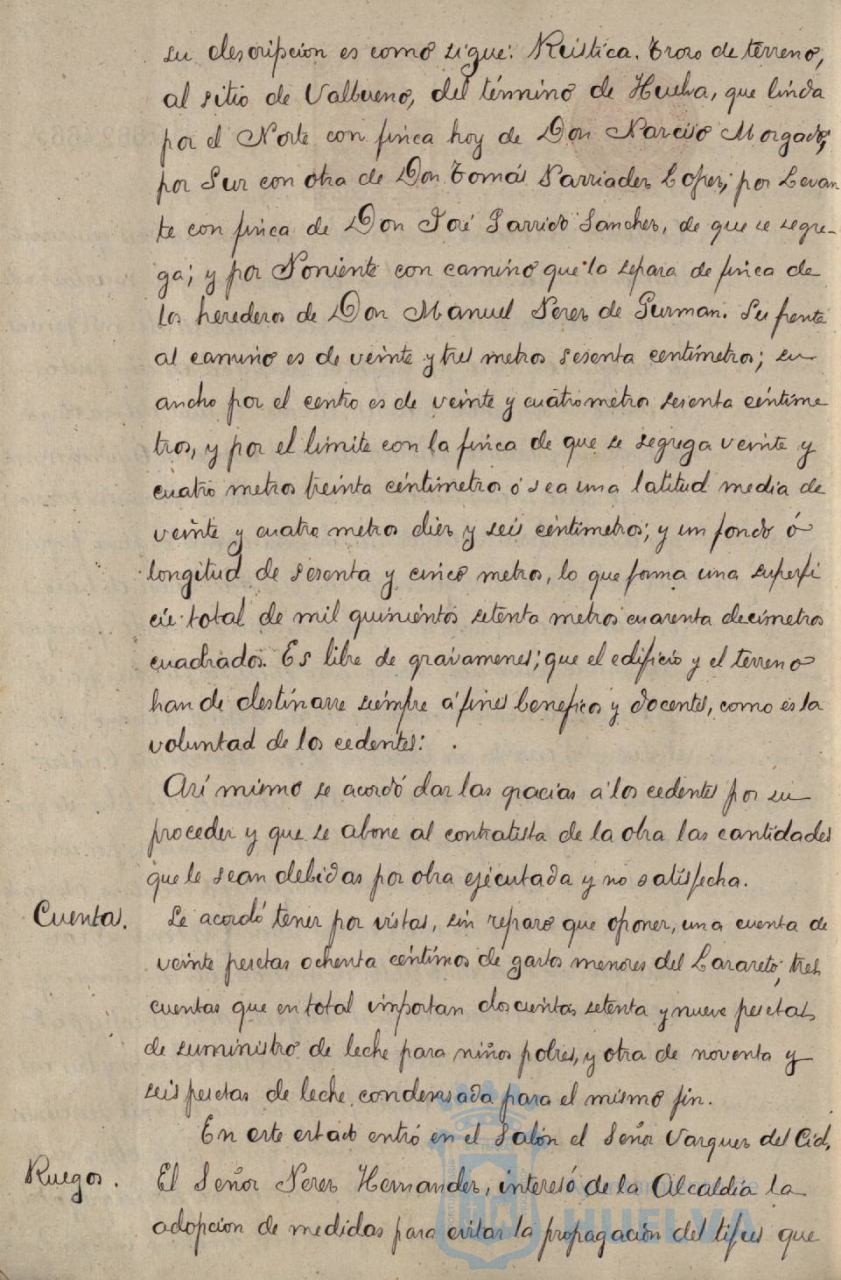 su descripcion es como sigue: Rústica. Trozo de terreno,
al sitio de Valbueno, del término de Huelva, que linda
por el Norte con finca hoy de Don Narciso Morgado;
por Sur con otra de Don Tomás Barriadez Lopez; por Levan
te con finca de Don José Garrido Sanchez, de que se segre-
ga; y por Poniente con camino que lo separa de finca de
los herederos de Don Manuel Perez de Guzman. Su frente
al camino es de veinte y tres metros sesenta centímetros; su
ancho por el centro es de veinte y cuatro metros sesenta céntime
tros, y por el límite con la finca de que se segrega veinte y
cuatro metros treinta céntimetros ó sea una latitud media de
veinte y cuatro metros diez y seis céntimetros; y un fondo ó
longitud de sesenta y cinco metros, lo que forma una superfi
cie total de mil quinientos setenta metros cuarenta decimetros
cuadrados. Es libre de gravamenes; que el edificio y el terreno
han de destinarse siempre á fines beneficos y docentes, como es la
voluntad de los cedentes: .
Así mismo se acordó dar las gracias a los cedentes por su
proceder y que se abone al contratista de la obra las cantidades
que le sean debidas por obra ejecutada y no satisfecha.
Cuentas. Se acordó tener por vistas, sin reparo que oponer, una cuenta de
veinte pesetas ochenta céntimos de gastos menores del Lazareto, tres
cuentas que en total importan doscientas setenta y nueve pesetas
de suministro de leche para niños pobres, y otra de noventa y
seis pesetas de leche condensada para el mismo fin.
En este estado entró en el Salón el Señor Vazquez del Cid.
Ruegos. El Señor Perez Hernandez, interesó de la Alcaldía la
adopcion de medidas para evitar la propagación del tifus que
HUELVA